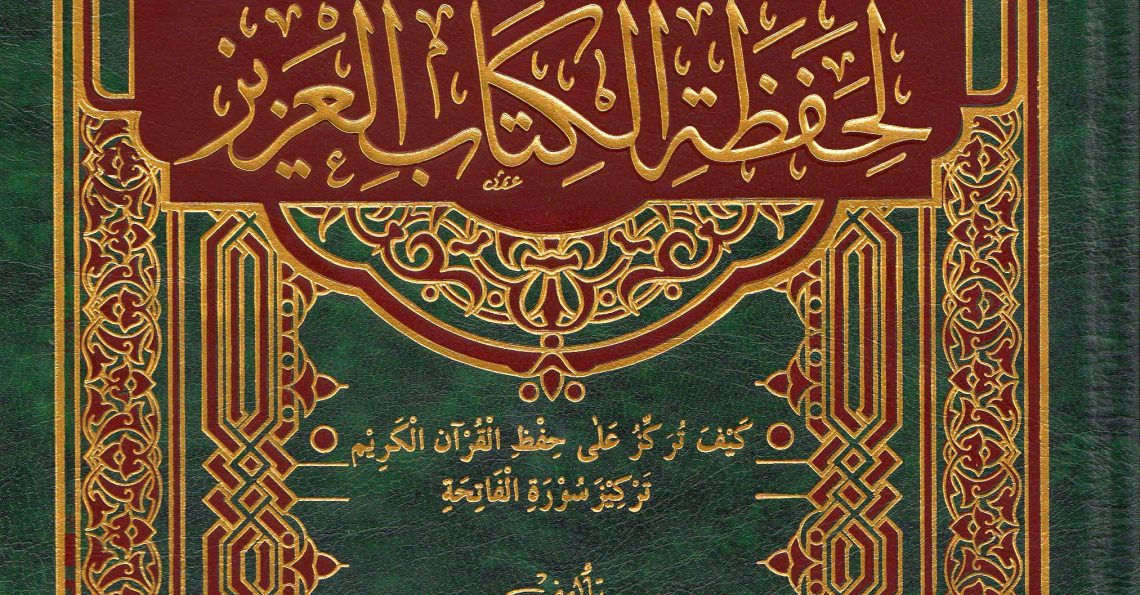 لِحَفَظَةِ الْكِتَابِ الْعَزِيزِ
كَيْفَ تُرَكِّزُ عَلٰى حِفْظِ الْقُرْآنِ الْكَرِيْمِ
تَرْكِيْزَ سُوْرَةِ الْفَاتِحَةِ